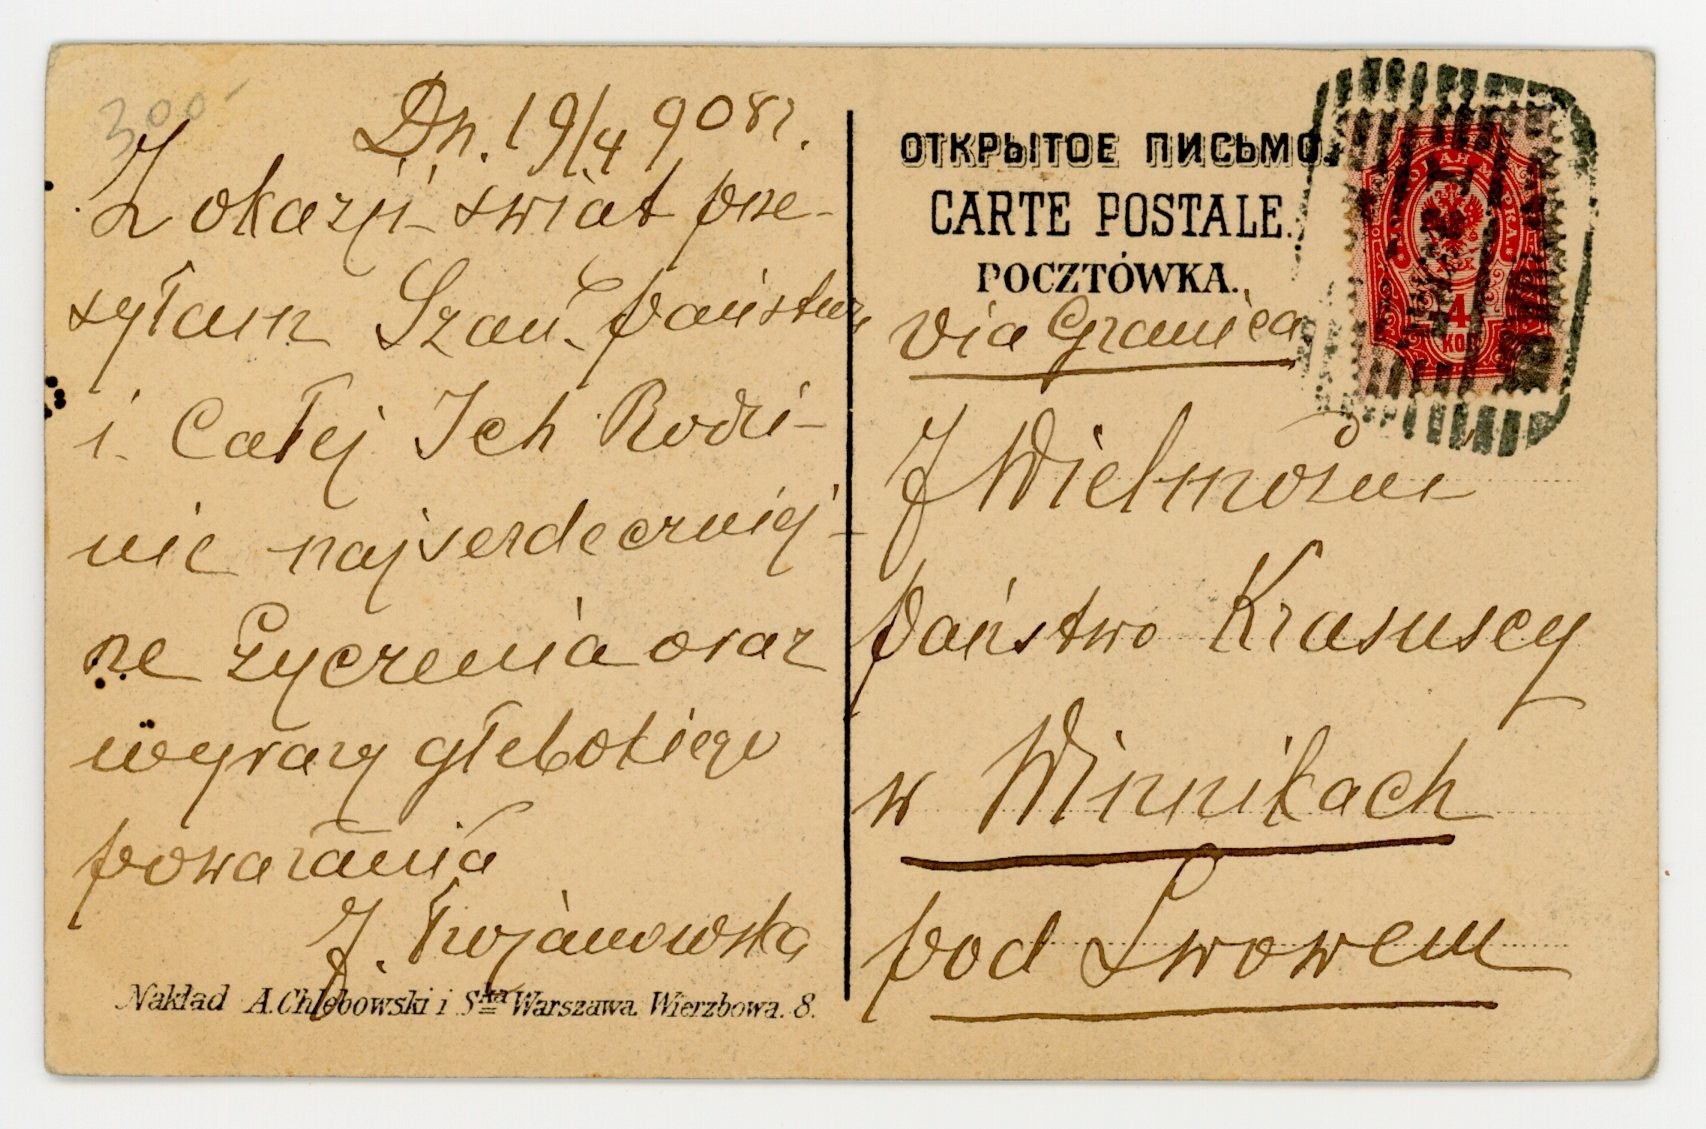 300-
Dn. 19/4 908 r.
Z okazji świąt prze-
syłam Szan. Państwu
i Całej Ich Rodzi-
nie najserdeczniej-
sze życzenia oraz
wyrazy głębokiego
poważania
J. Trojanowska
Nakład A. Chlebowski i Ska Warszawa. Wierzbowa. 8.
ОТКРЫТОЕ ПИСЬМО.
CARTE POSTALE.
POCZTÓWKA.
via Granica
4
КОП
J Wielmożni
Państwo Krasuscy
w Winnikach
pod Lwowem